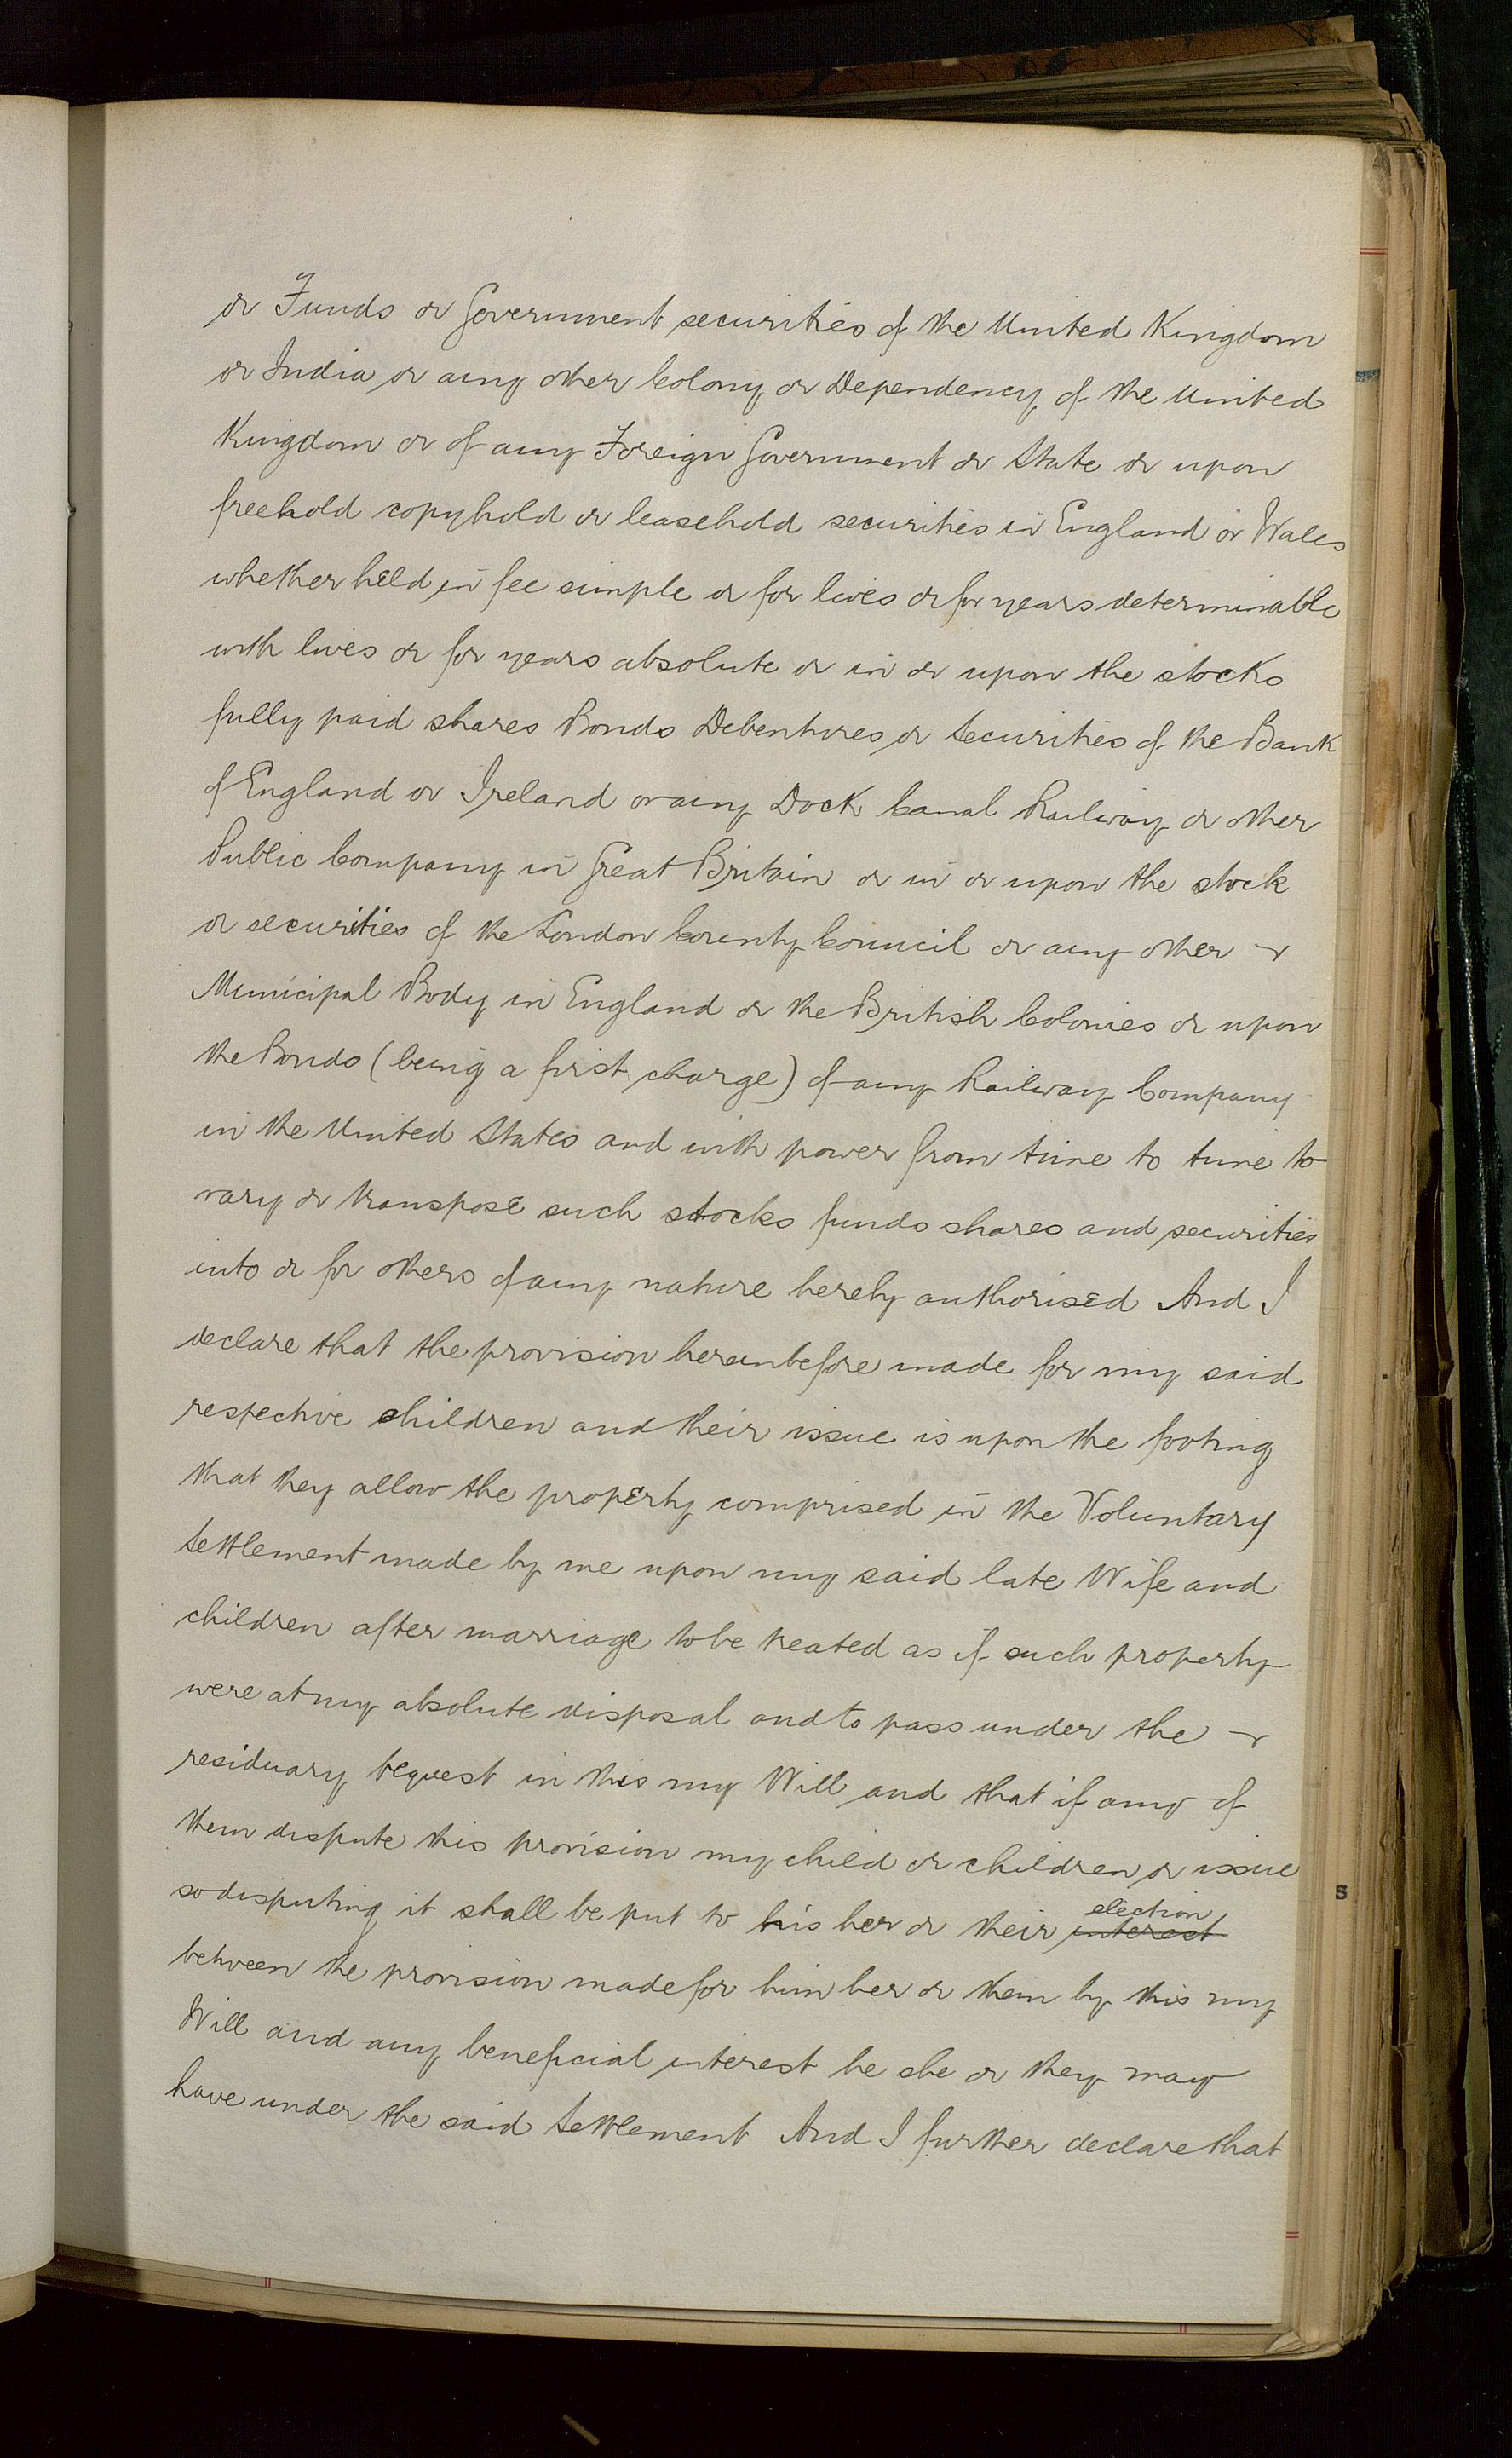 or Funds or Government securities of the United Kingdom
or India or any other Colony or Dependency of the United
Kingdom or of any Foreign Government or State or upon
freehold copyhold or leasehold securities in England or Wales
whether held in fee simple or for lives or for years determinable
with lives or for years absolute or in or upon the stocks
fully paid shares Bonds Debentures or Securities of the Bank
of England or Ireland or any Dock Canal Railway or other
Public Company in Great Britain or in or upon the stock
or securities of the London County Council or any other
Municipal Body in England or the British Colonies or upon
the Bonds (being a first charge) of any Railway Company
in the United States and with power from time to time to
vary or transpose such stocks funds shares and securities
into or for others of any nature hereby authorised And I
declare that the provision hereinbefore made for my said
respective children and their issue is upon the footing
that they allow the property comprised in the Voluntary
Settlement made by me upon my said late Wife and
children after marriage to be treated as if such property
were at my absolute disposal and to pass under the
residuary bequest in this my Will and that if any of
them dispute this provision my child or children or issue
election
so disputing it shall be put to his her or their interest
between the provision made for him her or them by this my
Will and any beneficial interest he she or they may
have under the said Settlement And I further declare that
S